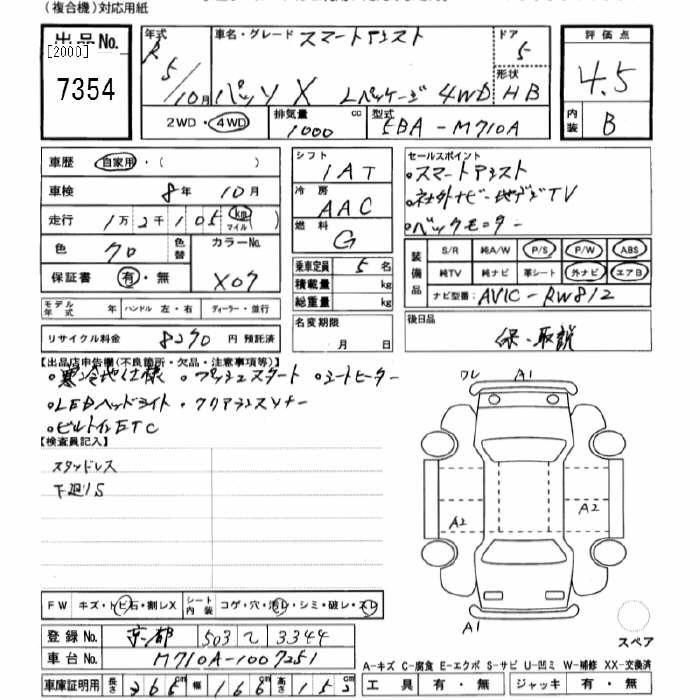 (複合機)対応用紙
出品No.
[2000]
7354
年式 R5/10月
車名・グレード スマートアシスト
パッソ X Lパッケージ 4WD
ドア 5
形状 HB
2WD・4WD
排気量 1000 cc
型式 5BA-M710A
評価点
4.5
内装 B
車歴 自家用・( )
車検 8年 10月
走行 1万2千105 km マイル ( )
色 クロ 色替 カラーNo.
保証書 有・無 X07
モデル年式 年 ハンドル 左・右 ディーラー・並行
リサイクル料金 8290 円 預託済
シフト 1AT
冷房 AAC
燃料 G
乗車定員 5 名
積載量 kg
総重量 kg
名変期限
月 日
セールスポイント
・スマートアシスト
・社外ナビ・地デジTV
・バックモニター
装備品 S/R 純A/W P/S P/W ABS
純TV 純ナビ 革シート 外ナビ エアB
ナビ型番: AVIC-RW812
後日品
保・取説
【出品店申告欄(不良箇所・欠品・注意事項等)】
・寒冷地仕様 ・プッシュスタート ・シートヒーター
・LEDヘッドライト・クリアランスソナー
・ビルトインETC
【検査員記入】
スタッドレス
下廻りS
ワレ A1
A2 A2
A1
スペア
FW キズ・トビ石・割レX シート内装 コゲ・穴・汚レ・シミ・破レ・スレ
登録No. 京都 503 て 3344
車台No. M710A-1007251
車庫証明用 長さ 365cm 幅 166cm 高さ 152
A-キズ C-腐食 E-エクボ S-サビ U-凹ミ W-補修 XX-交換済
工具 有・無 ジャッキ 有・無